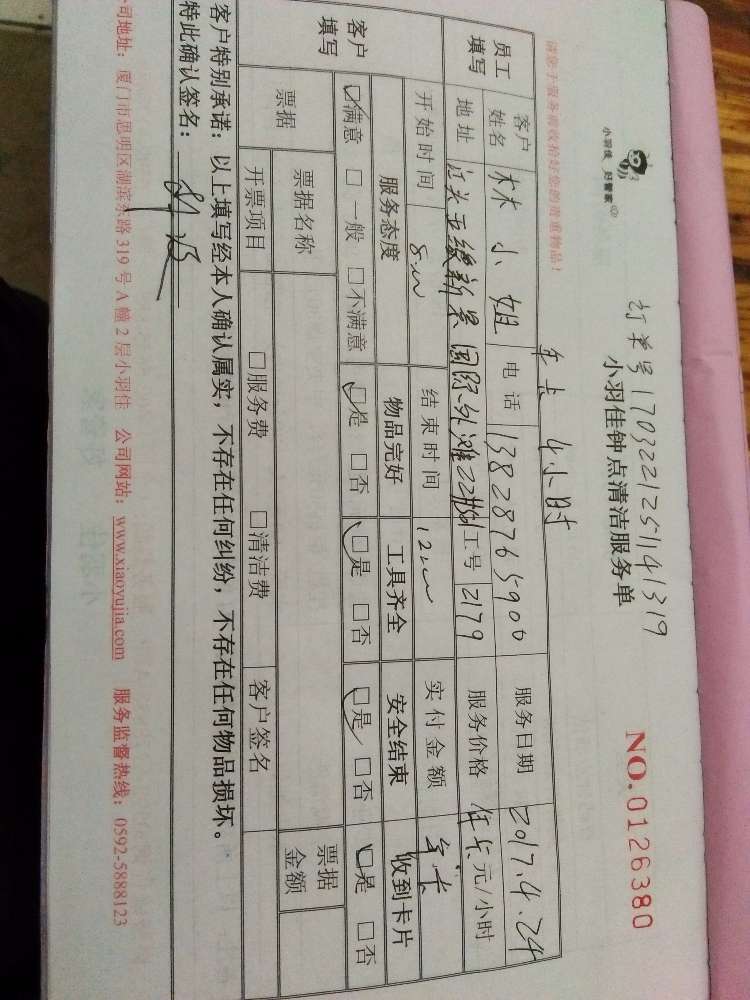 订单号1703221251141319
小羽佳 好管家
小羽佳钟点清洁服务单
NO.0126380
请您于服务前收拾好您的贵重物品！
年卡 4小时
员工填写
客户姓名 林小姐 电话 13828765900 服务日期 2017.4.24
地址 国际外滩 工号 2179 服务价格 年卡 元/小时
开始时间 结束时间 实付金额 年卡
客户填写
服务态度 物品完好 工具齐全 安全结束 收到卡片
☑满意 □一般 □不满意 ☑是 □否 ☑是 □否 ☑是 □否 ☑是 □否
票据 票据名称 票据金额
开票项目 □服务费 □清洁费 客户签名
客户特别承诺：以上填写经本人确认属实，不存在任何纠纷，不存在任何物品损坏。
特此确认签名：
公司地址：厦门市思明区湖滨东路319号A幢2层小羽佳 公司网站：www.xiaoyujia.com 服务监督热线：0592-5888123